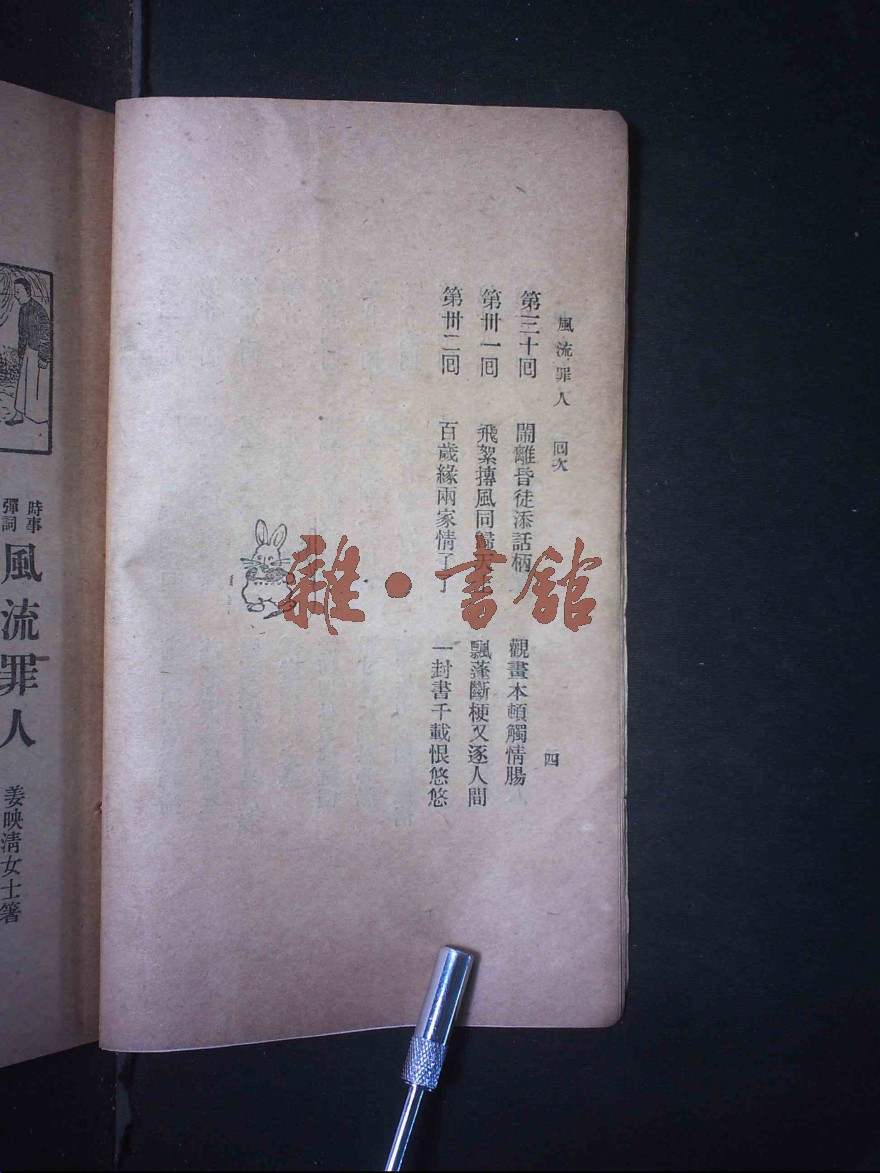 風流罪人 回次 四
第三十回 鬧離昏徒添話柄 觀畫本頓觸情腸
第卅一回 飛絮摶風同歸天上 飄蓬斷梗又逐人間
第卅二回 百歲緣兩家情了了 一封書千載恨悠悠
雜·書館
時事
彈詞
風流罪人
姜映清女士箸